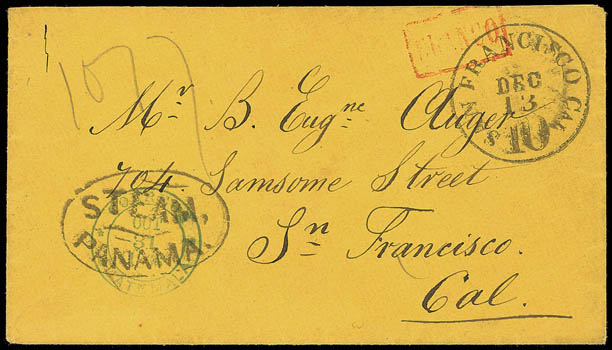 FRANCO
SAN FRANCISCO CAL.
DEC
13
10
Mr B. Eugne Auger
704. Samsome Street
Sn Francisco.
Cal.
STEAM,
PANAMA.